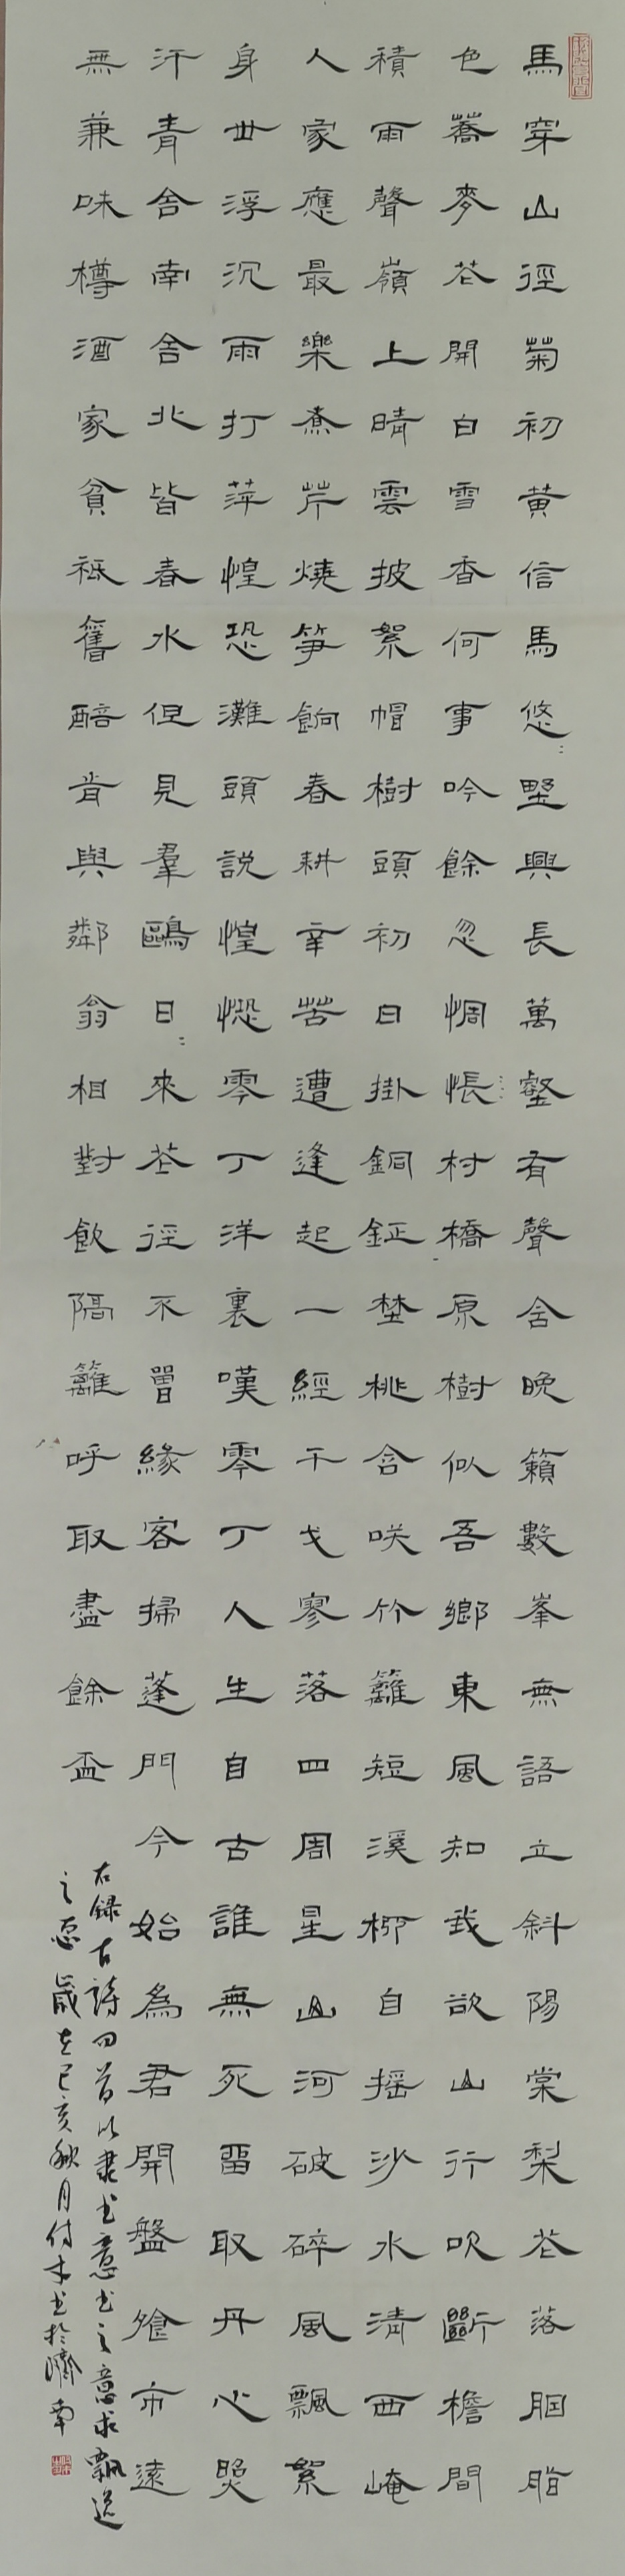 馬穿山徑菊初黄信馬悠〻野興長萬壑有聲含晚籟數峯無語立斜陽棠梨花落胭脂
色蕎麥花開白雪香何事吟餘忽惆悵村橋原樹似吾鄉東風知我欲山行吹斷檐間
積雨聲嶺上晴雲披絮帽樹頭初日掛銅鉦埜桃含咲竹籬短溪柳自摇沙水清西崦
人家應最樂煮芹燒笋餉春耕辛苦遭逢起一經干戈寥落四周星山河破碎風飄絮
身世浮沉雨打萍惶恐灘頭説惶恐零丁洋裏嘆零丁人生自古誰無死留取丹心照
汗青舍南舍北皆春水但見羣鷗日〻來花徑不曾緣客掃蓬門今始為君開盤飧市遠
無兼味樽酒家貧祗舊醅肯與鄰翁相對飲隔籬呼取盡餘盃
右録古詩四首以隶书意书之意求飄逸
之愿歲在己亥秋月付书於濟南